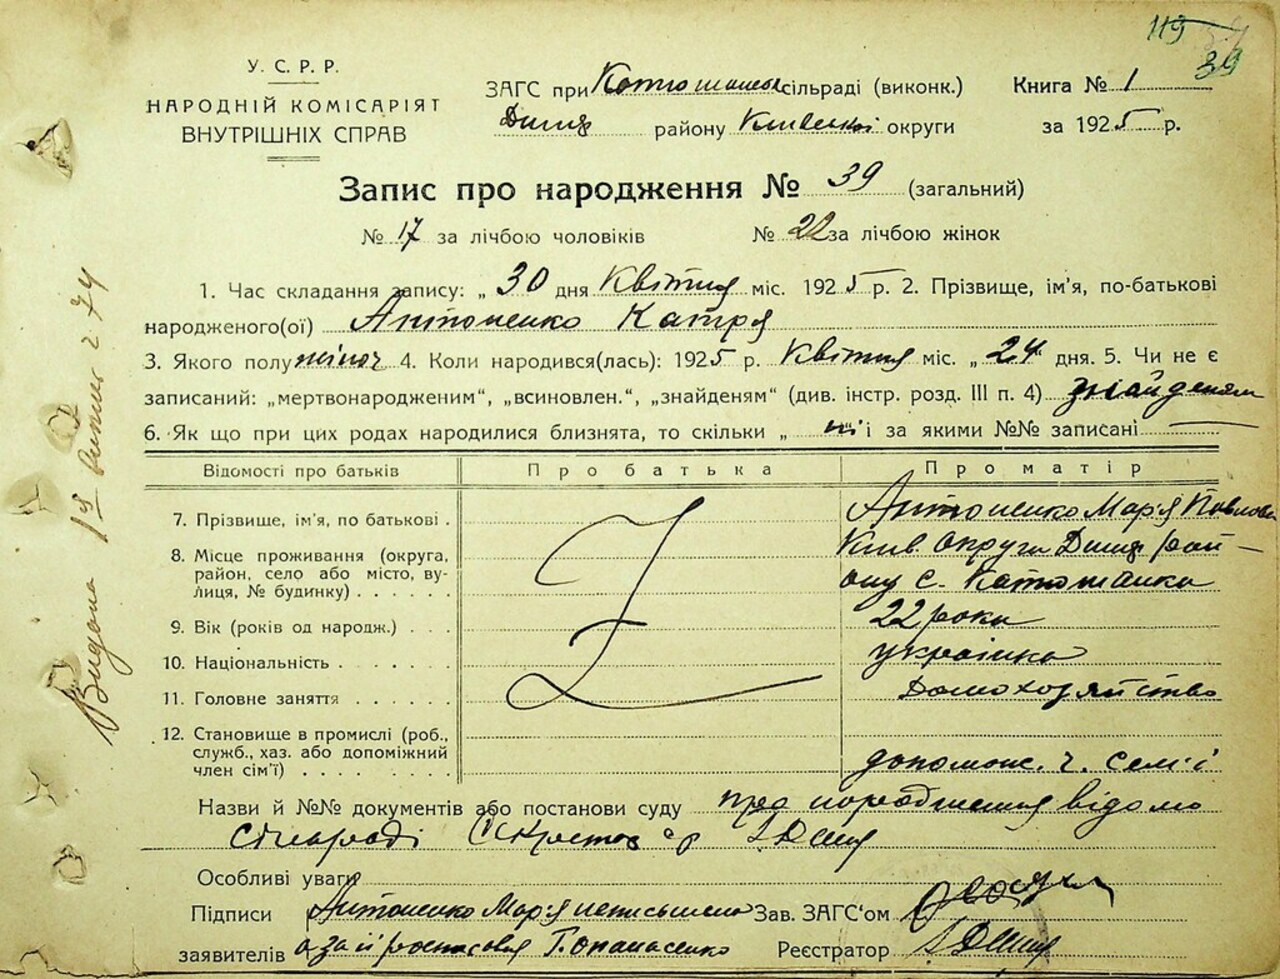 119
39
У. С. Р. Р.
НАРОДНІЙ КОМІСАРІЯТ
ВНУТРІШНІХ СПРАВ
ЗАГС при Катюжанськ сільраді (виконк.)
Димер району Київської округи
Книга № 1
за 1925 р.
Запис про народження № 39 (загальний)
№ 17 за лічбою чоловіків № 22 за лічбою жінок
1. Час складання запису: „ 30 дня Квітня міс. 1925 р. 2. Прізвище, ім'я, по-батькові
народженого(ої) Антоненко Катря
3. Якого полу жіноч 4. Коли народився(лась): 1925 р. Квітня міс. „ 24 " дня. 5. Чи не є
записаний: „мертвонародженим", „всиновлен.", „знайденям" (див. інстр. розд. III п. 4) знайденям
6. Як що при цих родах народилися близнята, то скільки „ ні і за якими №№ записані
Відомості про батьків Про батька Про матір
7. Прізвище, ім'я, по батькові . Антоненко Мар'я Павлова
8. Місце проживання (округа, Київ. округи Димер рай-
район, село або місто, ву- ону с. Катюжанки
лиця, № будинку) . . . . . .
9. Вік (років од народж.) . . . 22 роки
10. Національність . . . . . . українка
11. Головне заняття . . . . . . Домохозяйство
12. Становище в промислі (роб.,
служб., хаз. або допоміжний
член сім'ї) . . . . . . . . допомож. ч. семї
Назви й №№ документів або постанови суду про народження відомо
сільраді
Особливі уваги
Підписи Антоненко Мар'я неписьмена Зав. ЗАГС'ом
заявителів а за її росписовся Г. Опанасенко Реєстратор
Видана 19